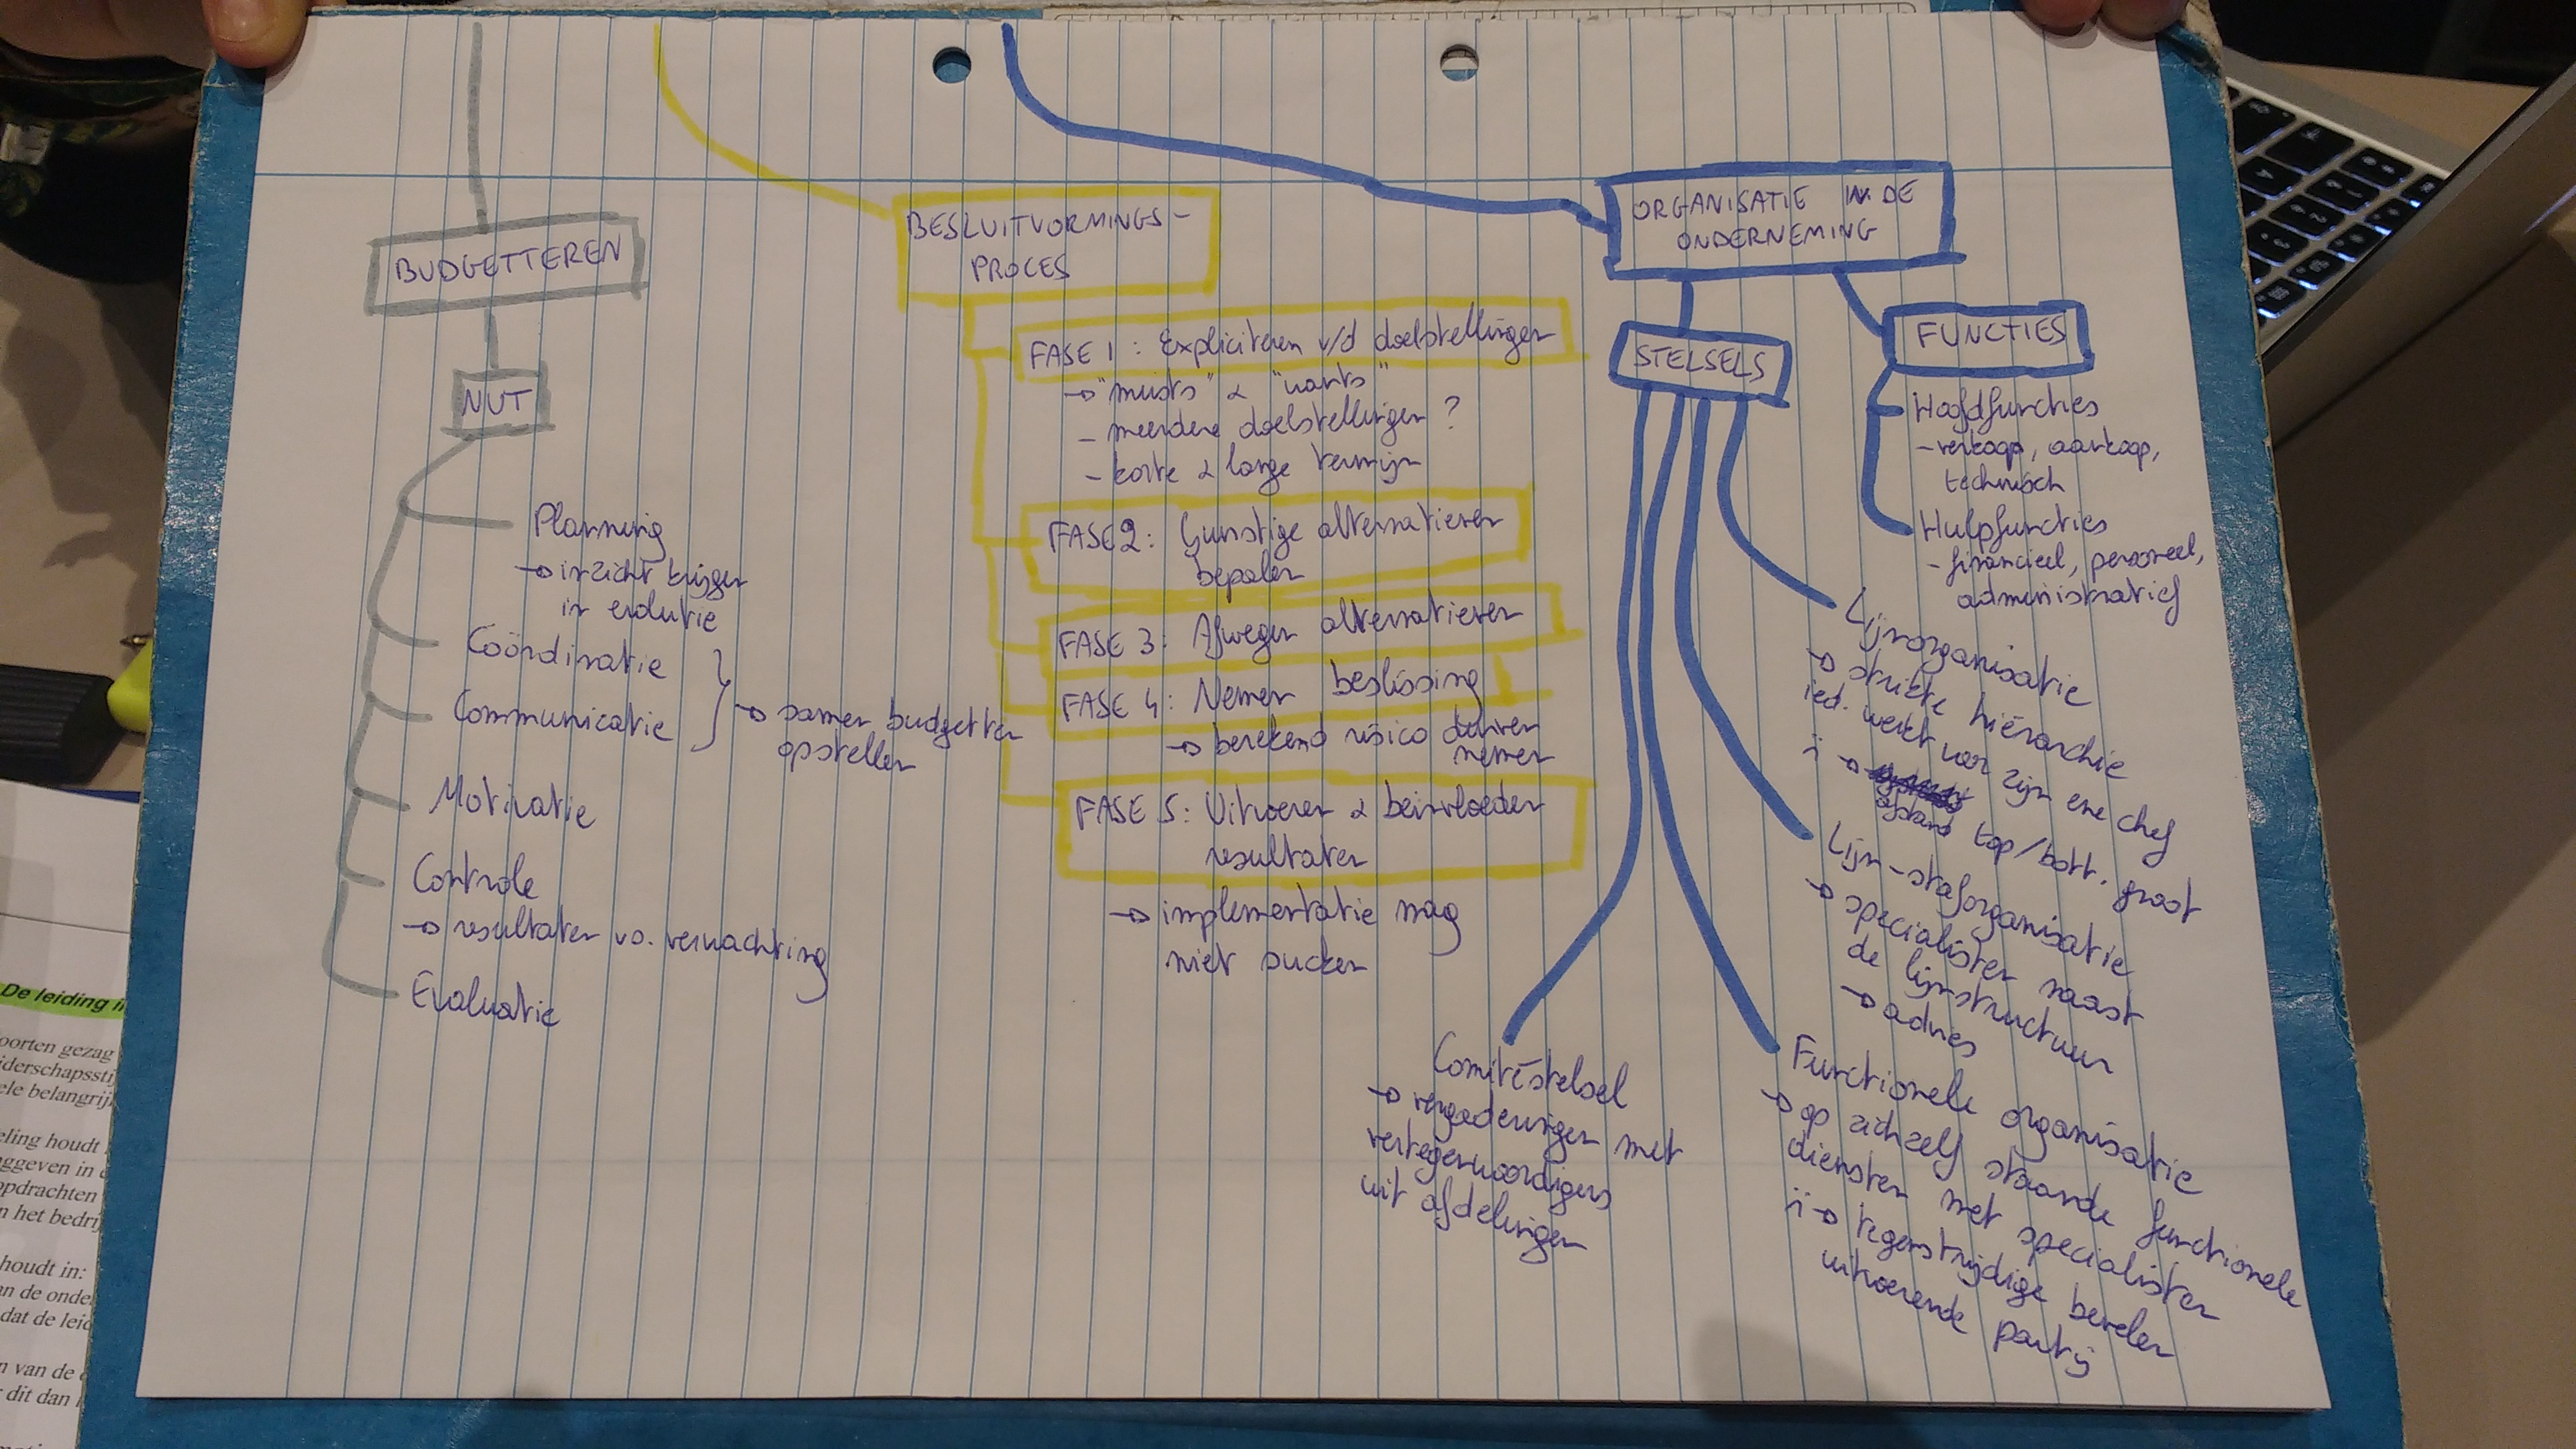 BUDGETTEREN
NUT
Planning
→ inzicht krijgen
in evolutie
Coördinatie
Communicatie
→ samen budgetten
opstellen
Motivatie
Controle
→ resultaten vs. verwachting
Evaluatie
BESLUITVORMINGS-
PROCES
FASE 1 : Expliciteren v/d doelstellingen
→ "musts" & "wants"
- meerdere doelstellingen ?
- korte & lange termijn
FASE 2 : Gunstige alternatieven
bepalen
FASE 3 : Afwegen alternatieven
FASE 4 : Nemen beslissing
→ berekend risico durven
nemen
FASE 5 : Uitvoeren & beïnvloeden
resultaten
→ implementatie mag
niet sucken
ORGANISATIE IN DE
ONDERNEMING
STELSELS
FUNCTIES
Hoofdfuncties
- verkoop, aankoop,
technisch
Hulpfuncties
- financieel, personeel,
administratief
Lijnorganisatie
→ strikte hiërarchie
ied. werkt voor zijn ene chef
→ afstand top/bott. groot
Lijn-staforganisatie
→ specialisten naast
de lijnstructuur
→ advies
Functionele organisatie
→ op zichzelf staande functionele
diensten met specialisten
→ tegenstrijdige bevelen
uitvoerende partij
Comitéstelsel
→ vergaderingen met
vertegenwoordigers
uit afdelingen
De leiding i
oorten gezag
iderschapssti
ele belangrij
eling houdt
ggeven in
opdrachten
n het bedrij
houdt in:
an de onde
dat de leid
n van de
dit dan